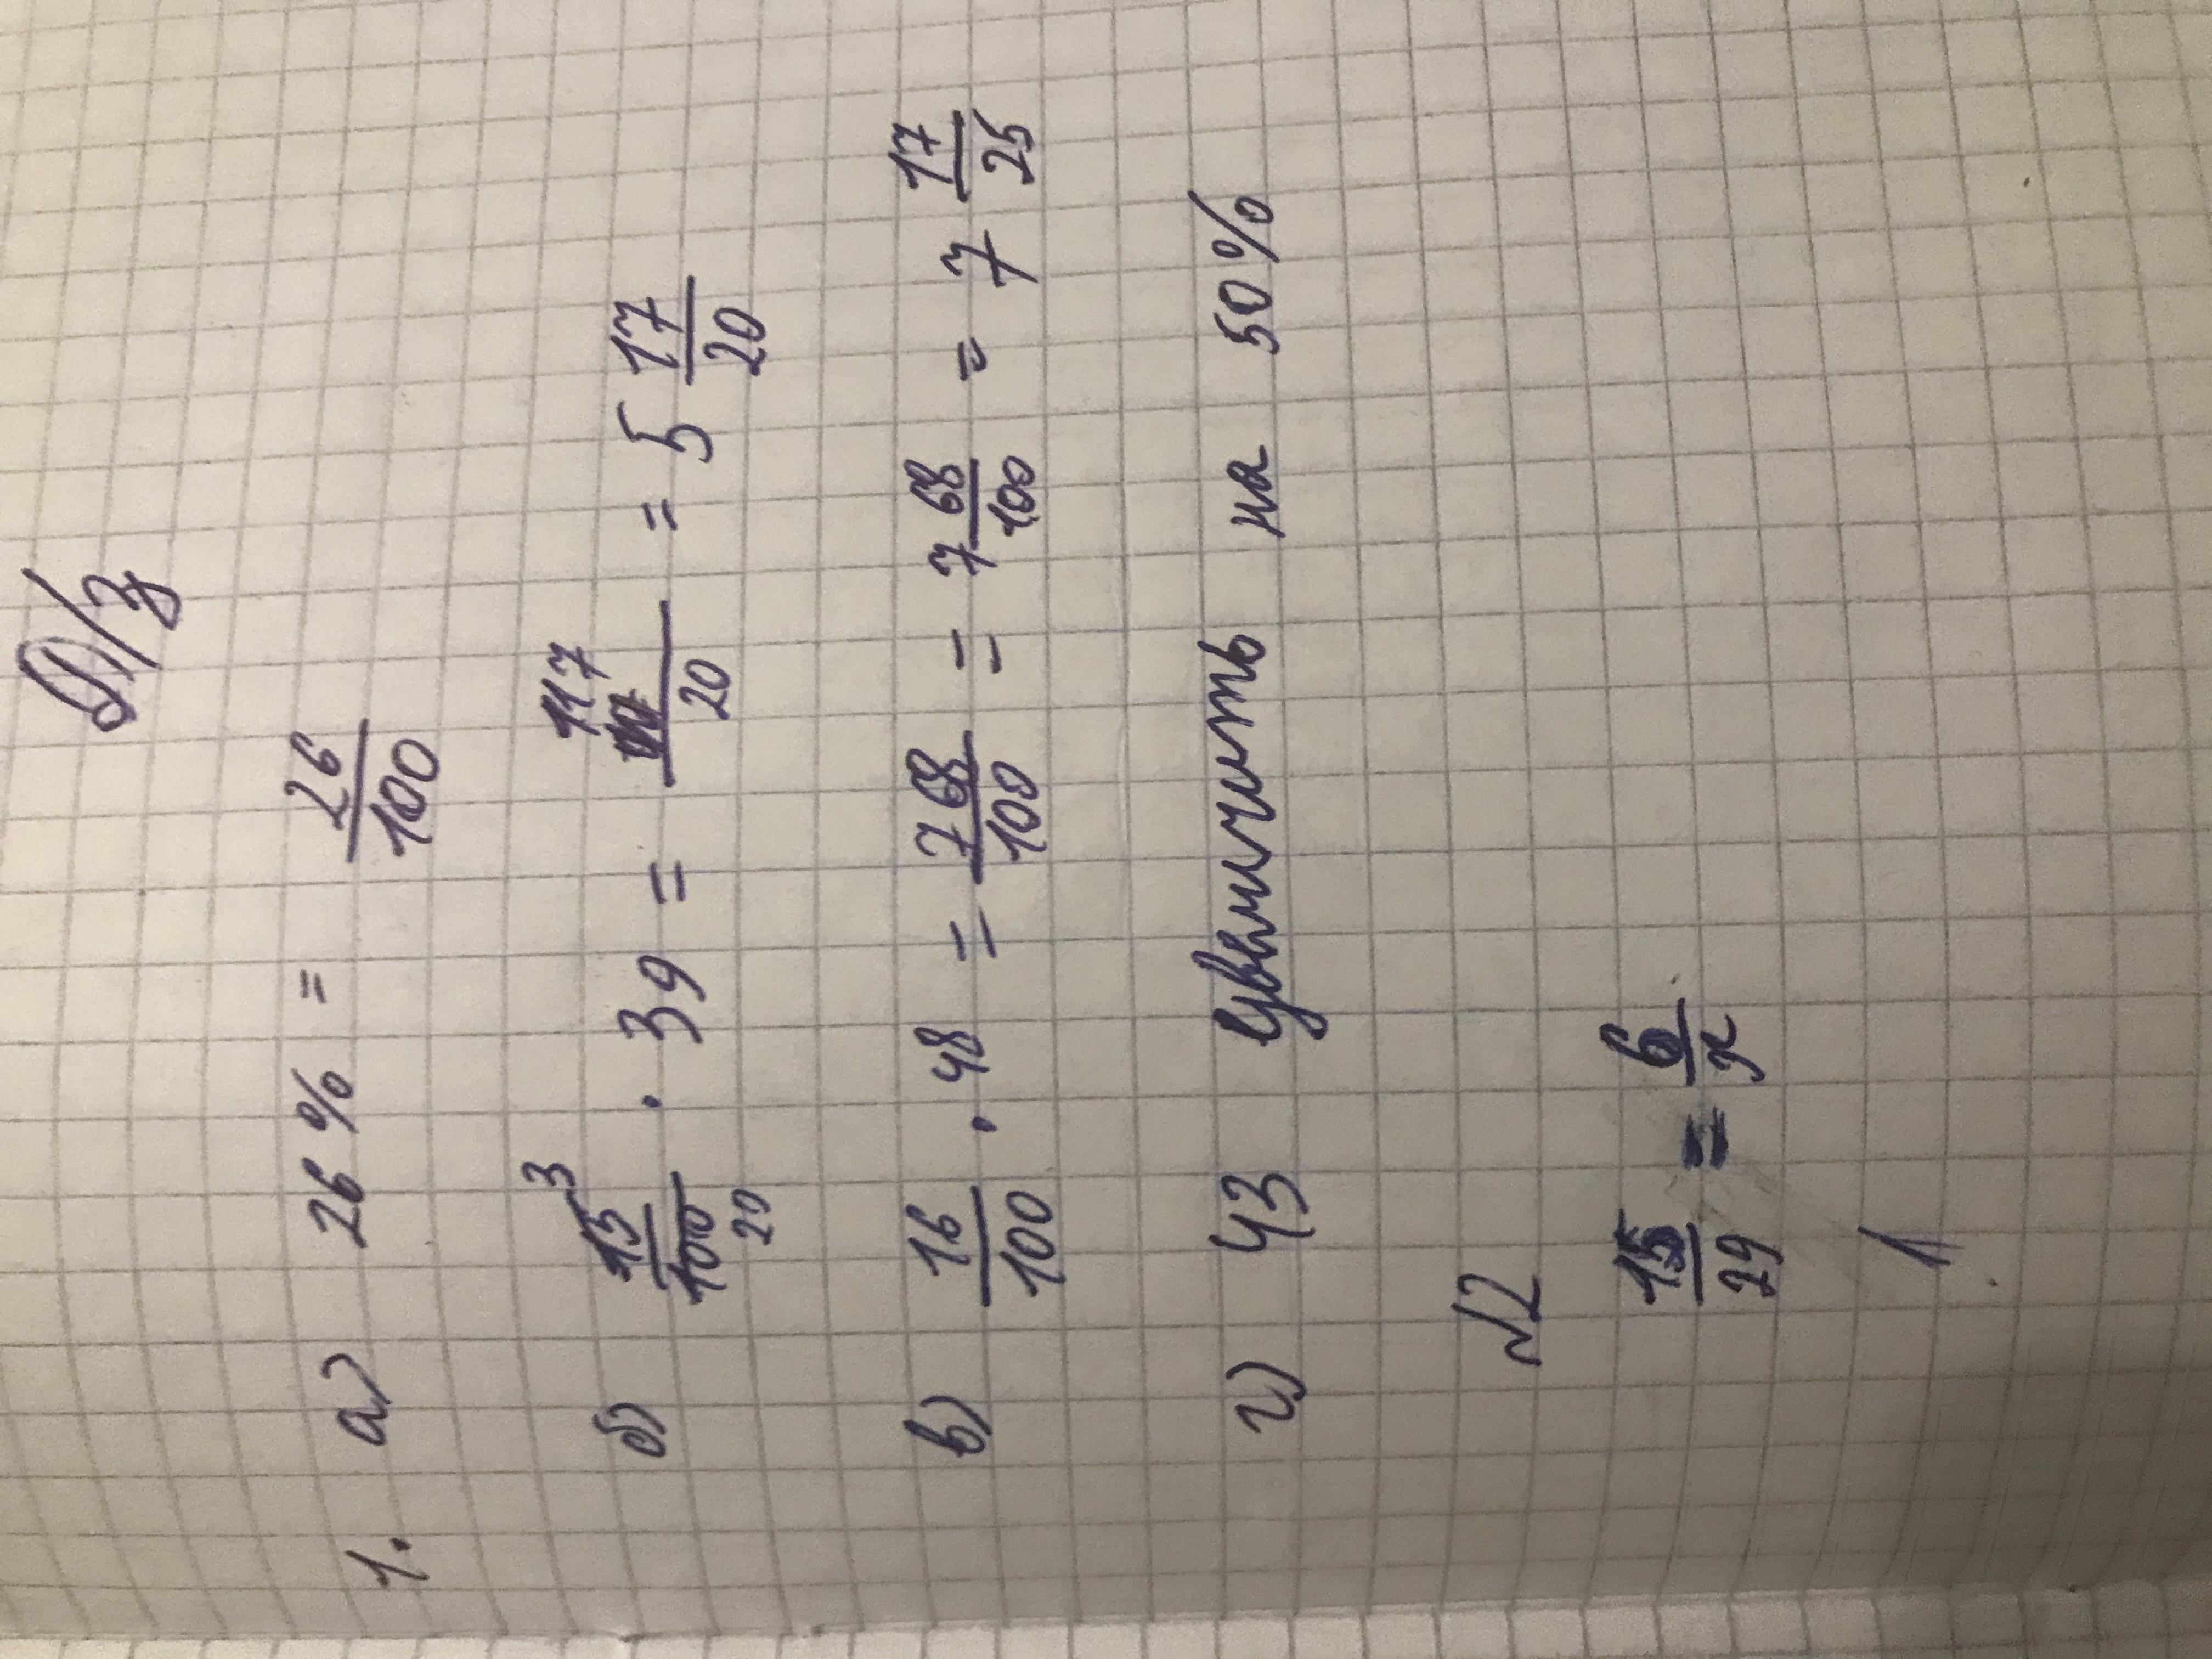 Д/з
1. а) 26 % = 26/100
б) 15/100 3 20 · 39 = 117/20 = 5 17/20
в) 16/100 · 48 = 768/100 = 7 68/100 = 7 17/25
г) 43 Увеличить на 50%
№2
15/29 = 6/x
1